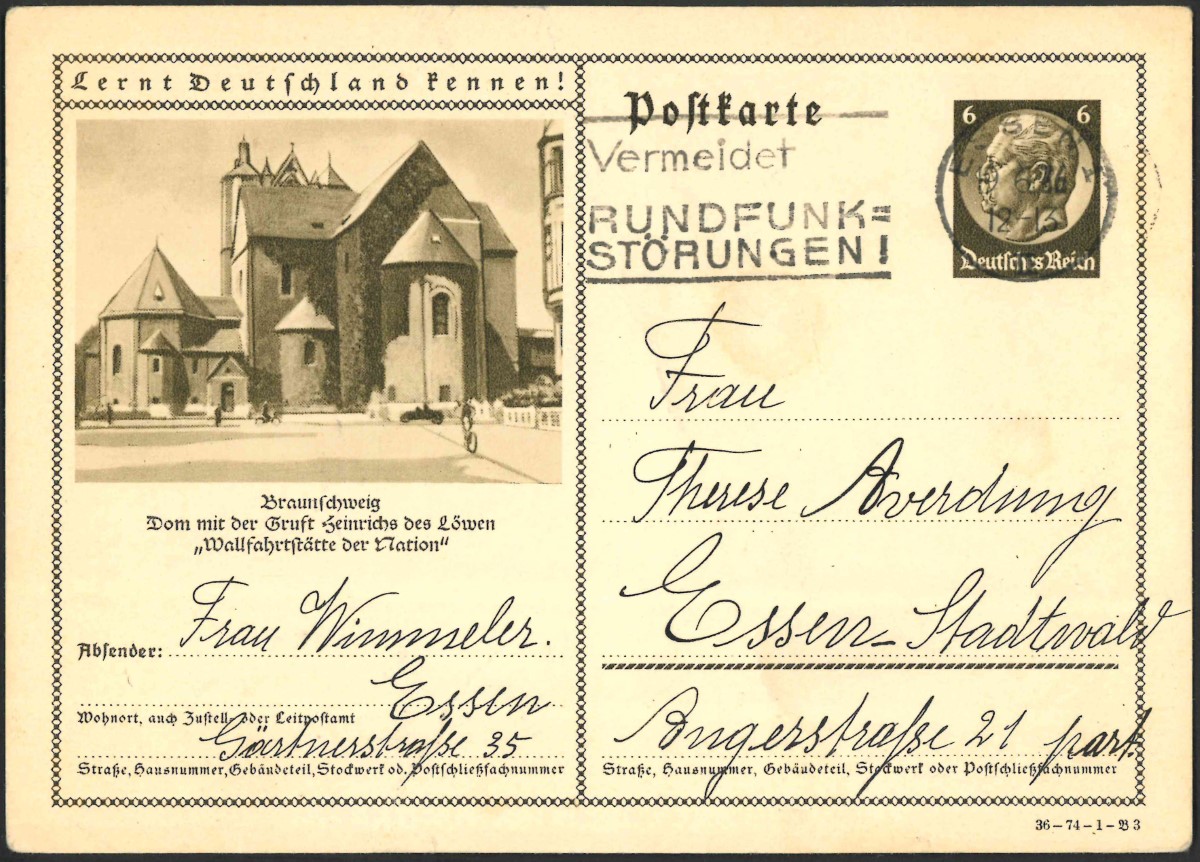 Lernt Deutschland kennen!
Braunschweig
Dom mit der Gruft Heinrichs des Löwen
„Wallfahrtstätte der Nation“
Absender: Frau Wimmeler.
Essen
Wohnort, auch Zustell- oder Leitpostamt
Gärtnerstraße 35
Straße, Hausnummer, Gebäudeteil, Stockwerk od. Postschließfachnummer
Postkarte
Vermeidet
RUNDFUNK=
STÖRUNGEN!
6 6
ESSEN
12-13
Deutsches Reich
Frau
Therese Averdung
Essen-Stadtwald
Angerstraße 21 part.
Straße, Hausnummer, Gebäudeteil, Stockwerk oder Postschließfachnummer
36-74-1-B 3